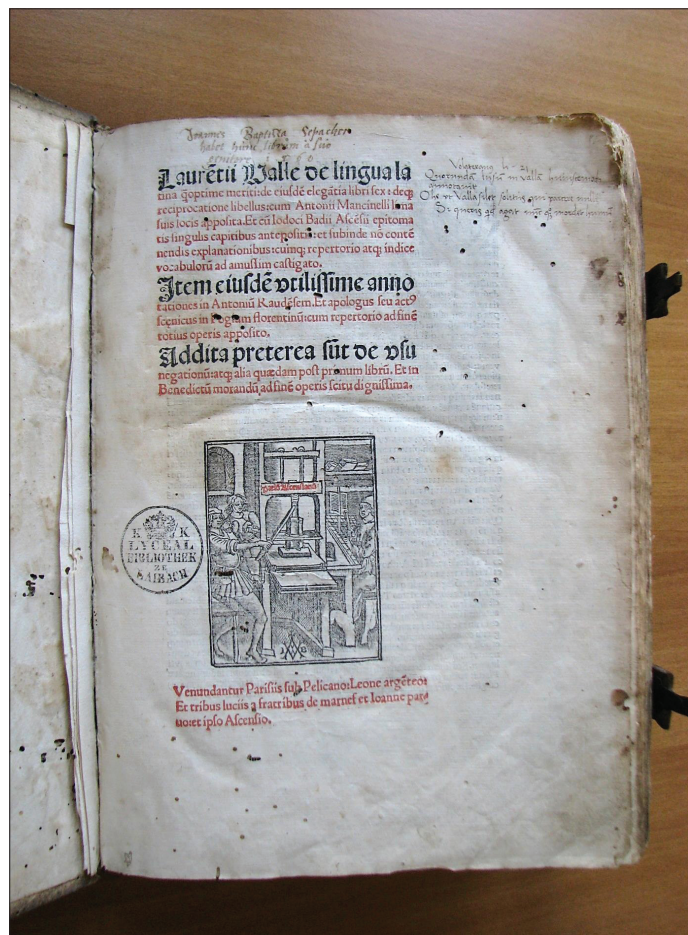 Joannes Baptista Sepacher
habet hunc librum a suo
genitore
Laurētii Valle de lingua la
tina q̄optime meriti:de eiusdē elegātia libri sex : deq;
reciprocatione libellus:cum Antonii Mancinelli lima
suis locis apposita. Et cū Iodoci Badii Ascēsii epitoma
tis singulis capitibus antepositis:et subinde nō contē
nendis explanationibus:cumq; repertorio atq; indice
vocabulorū ad amussim castigato.
Item eiusdē vtilissime anno
tationes in Antoniū Raudēsem. Et apologus seu act9
scenicus in Pogium florentinū:cum repertorio ad finē
totius operis apposito.
Addita preterea sūt de vsu
negationū:atq; alia quædam post primum librū. Et in
Benedictū morandū ad finē operis scitu dignissima.
K K
LYCEAL
BIBLIOTHEK
ZU
LAIBACH
Venundantur Parisiis sub Pelicano:Leone argēteo:
Et tribus luciis a fratribus de marnef et Ioanne par
uo:et ipso Ascensio.